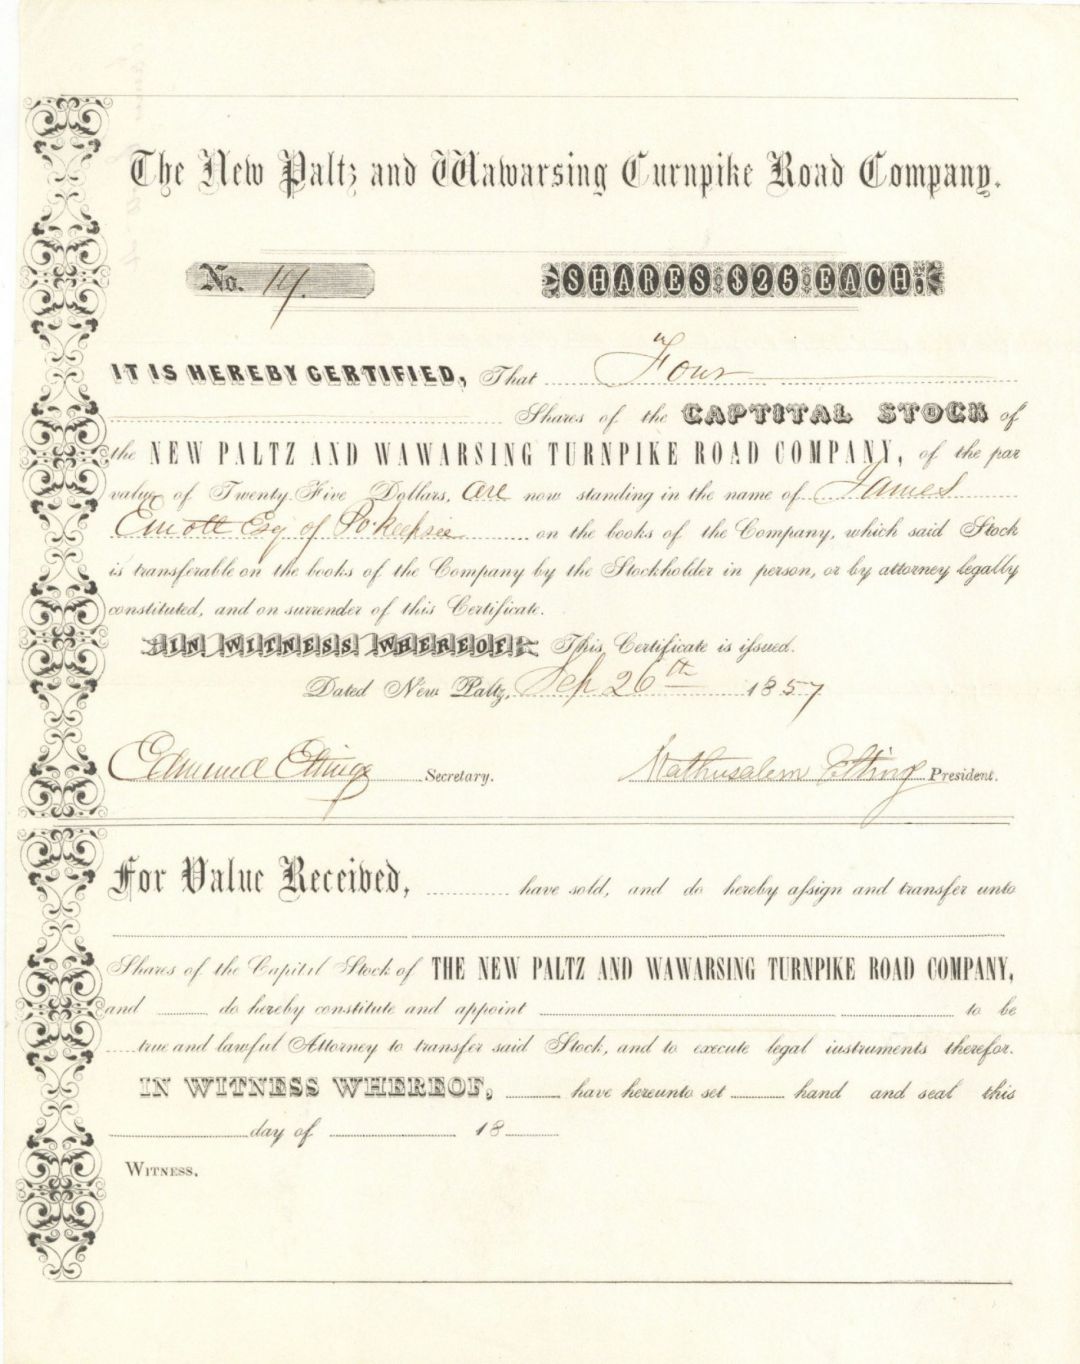 The New Paltz and Wawarsing Turnpike Road Company.
No. 14. SHARES $25 EACH.
IT IS HEREBY CERTIFIED, That Four
Shares of the CAPTITAL STOCK of
the NEW PALTZ AND WAWARSING TURNPIKE ROAD COMPANY, of the par
value of Twenty Five Dollars, are now standing in the name of James
Emott Esq of Po'keepsie on the books of the Company, which said Stock
is transferable on the books of the Company by the Stockholder in person, or by attorney legally
constituted, and on surrender of this Certificate.
IN WITNESS WHEREOF: This Certificate is issued.
Dated New Paltz, Sep 26th 1857
Edmund Eltinge Secretary. Mathusalem Elting President.
For Value Received, have sold, and do hereby assign and transfer unto
Shares of the Capital Stock of THE NEW PALTZ AND WAWARSING TURNPIKE ROAD COMPANY,
and do hereby constitute and appoint to be
true and lawful Attorney to transfer said Stock, and to execute legal instruments therefor.
IN WITNESS WHEREOF, have hereunto set hand and seal this
day of 18
WITNESS.